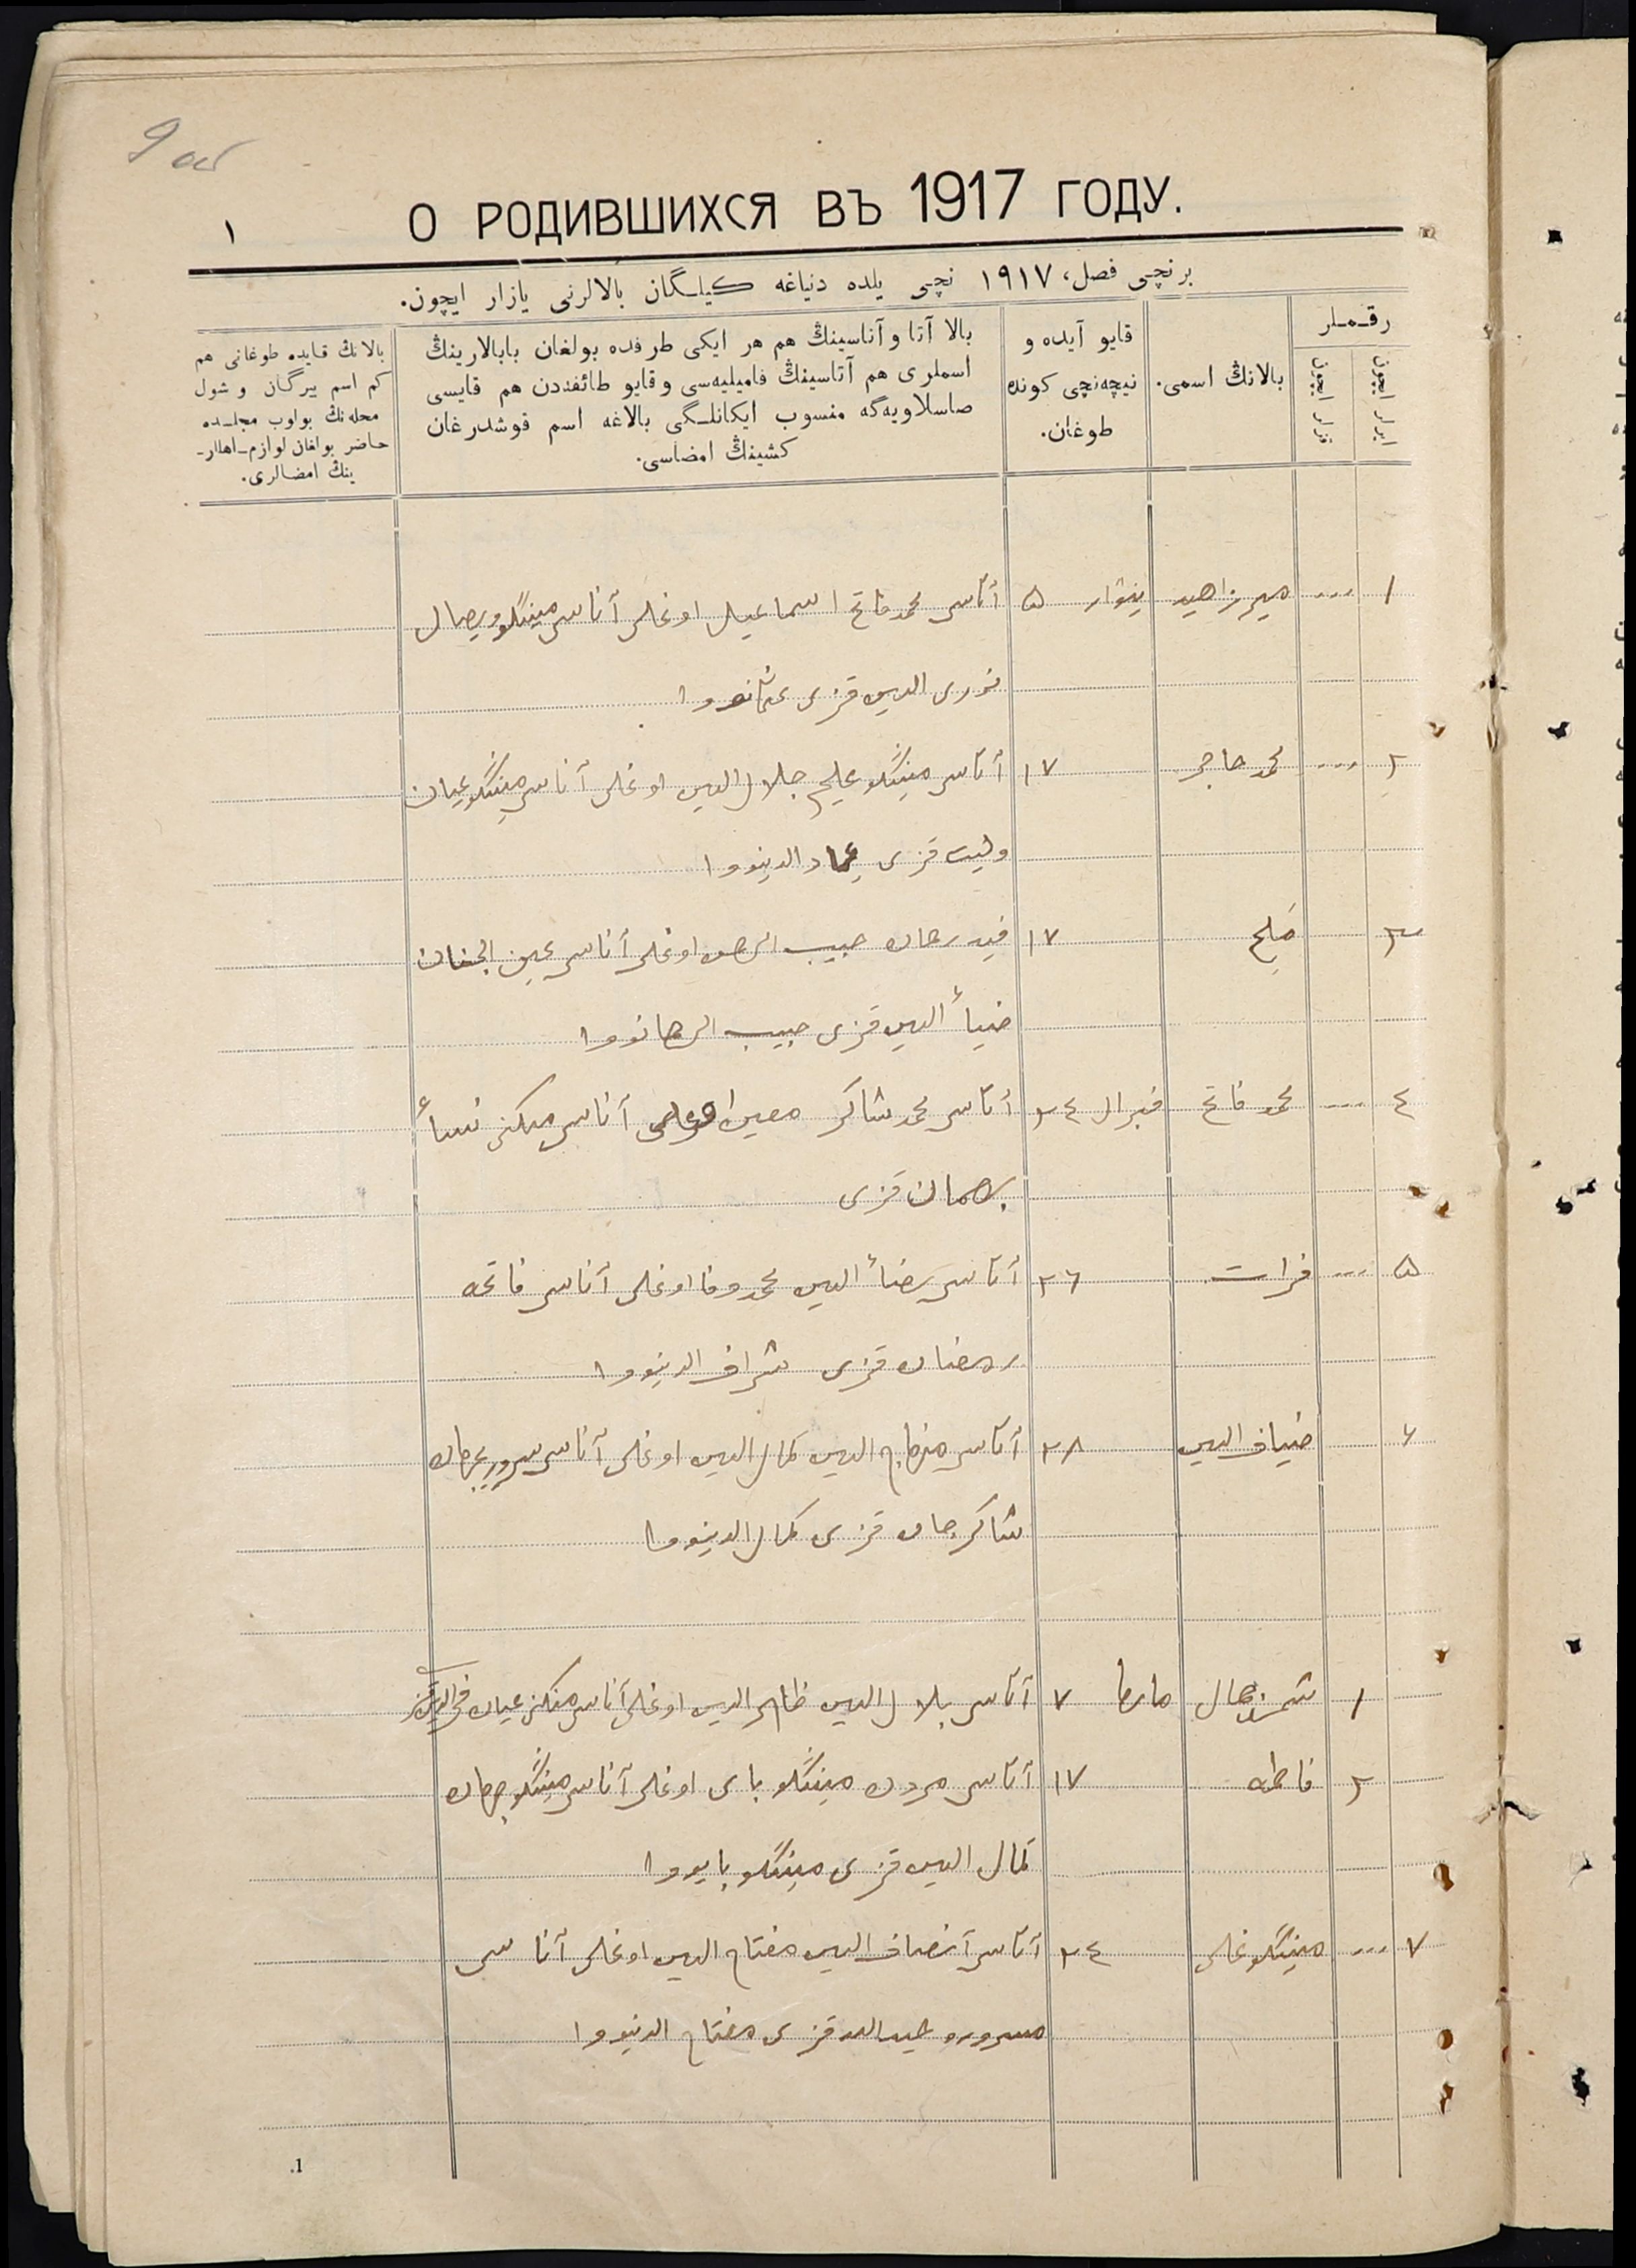 9 об
١
О РОДИВШИХСЯ ВЪ 1917 ГОДУ.
برنچی فصل، ١٩١٧ نچی یلده دنیاغه كیلـگان بالالرنی یازار ایچون.
رقـمـلر
ایرلر ایچون
قزلر ایچون
بالانڭ اسمی.
قایو آیده و
نیچه‌نچی كونده
طوغان.
بالا آتا و آناسینڭ هم هر ایكی طرفده بولغان بابالارینڭ
اسملری هم آتاسینڭ فامیلیه‌سی و قایو طائفه‌دن هم قایسی
صاسلاویه‌گه منسوب ایكانلـگی بالاغه اسم قوشدرغان
كشینڭ امضاسی.
بالانڭ قایده طوغانی هم
كم اسم بیرگان و شول
محله‌نڭ بولوب مجلـده
حاضر بولغان لوازم-اهللر-
ینڭ امضالری.
١ ... میرزاهید ینوار ۵ أتاسی محمد فاتح اسماعیل اوغلی آناسی مینگلو ویصال
نوری الدین قزی عثمانووا
٢ ... محمد حاجی ١٧ أتاسی مینگلو علیم جلال الدین اوغلی آناسی مینگلو عیان
ولیت قزی عماد الدینووا
٣ ملیح ١٧ حبیب الرحمن اوغلی آناسی عین الجنان
ضیأ الدین قزی حبیب الرحمانووا
٤ ... محمد فاتح فبرال ٢٤ أتاسی محمد شاكر معین اوغلی آناسی نسأ
قزی
۵ ... فرات ٢٦ أتاسی الدین محمد وفا اوغلی آناسی فاتحه
رمضان قزی شراف الدینووا
٦ ضیاف الدین ٢٨ أتاسی منهاج الدین كمال الدین اوغلی آناسی سرور
شاكرجان قزی كمال الدینووا
١ مارط ٧ آتاسی بلال الدین ظاهر الدین اوغلی آناسی عیان
٢ فاطمه ١٧ آتاسی مردان مینگلو بای اوغلی آناسی مینگلو جهان
كمال الدین قزی مینگلو بایووا
٧ ... مینگلو غلی ٢٤ آتاسی انصاف الدین مفتاح الدین اوغلی آناسی
قزی مفتاح الدینووا
1.